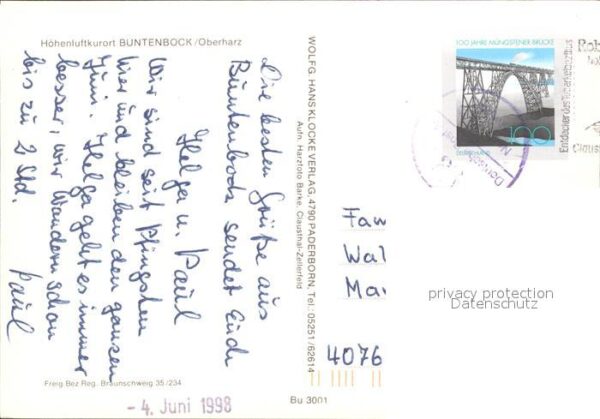 Höhenluftkurort BUNTENBOCK/Oberharz
Die besten Grüße aus
Buntenbock sendet Euch
Helga u. Paul
Wir sind seit Pfingsten
hier und bleiben den ganzen
Juni. Helga geht es immer
besser, wir wandern schon
bis zu 2 Std.
Paul
Freig Bez Reg. Braunschweig 35/234
- 4. Juni 1998
WOLFG. HANS KLOCKE VERLAG, 4790 PADERBORN, Tel.: 05251/62614
Aufn. Harzfoto Barke, Clausthal-Zellerfeld
Bu 3001
100 JAHRE MÜNGSTENER BRÜCKE
100
Rob
Entdecker des Tuberkelbazillus
Claus
Faw
Wal
Ma
4076
privacy protection
Datenschutz